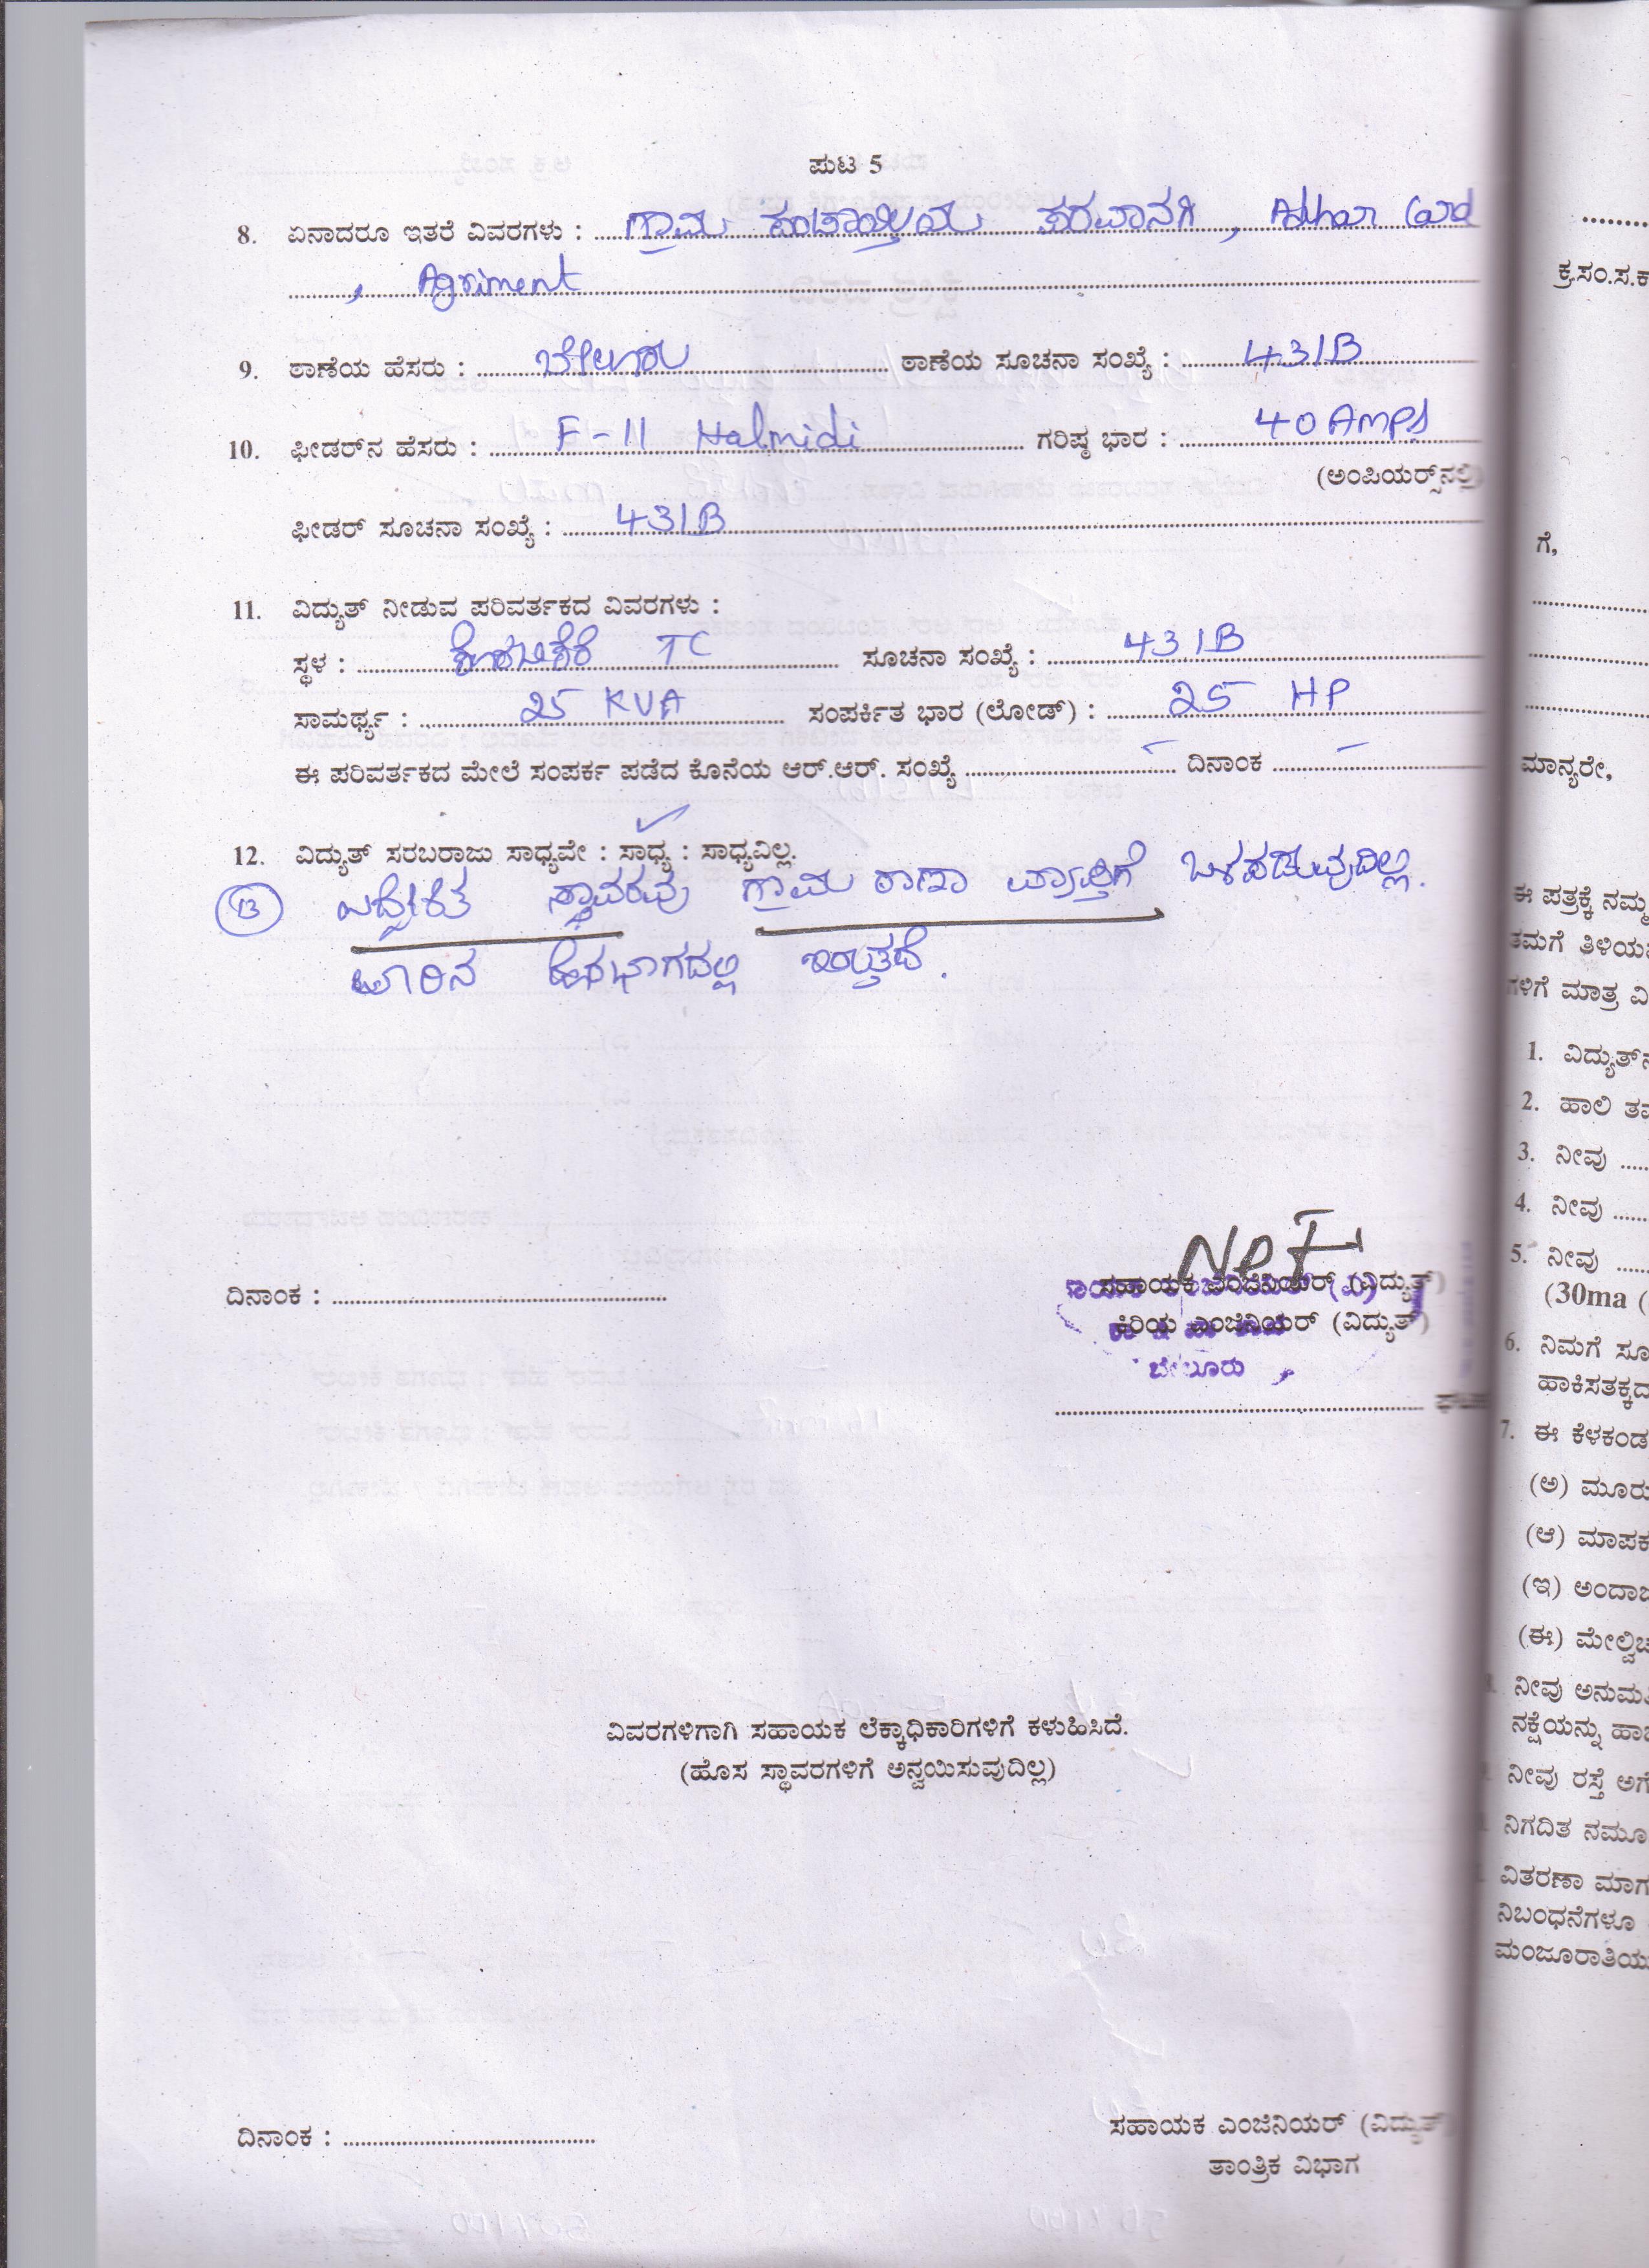 ಪುಟ 5
8. ಏನಾದರೂ ಇತರೆ ವಿವರಗಳು : ಗ್ರಾಮ ಪಂಚಾಯ್ತಿಯ ಪರವಾನಗಿ, Adhar Card
, Agriment
9. ಠಾಣೆಯ ಹೆಸರು : ಬೇಲೂರು ಠಾಣೆಯ ಸೂಚನಾ ಸಂಖ್ಯೆ : 431B
10. ಫೀಡರ್‌ನ ಹೆಸರು : F-11 Halmidi ಗರಿಷ್ಠ ಭಾರ : 40 Amps
(ಅಂಪಿಯರ್ಸ್‌ನಲ್ಲಿ)
ಫೀಡರ್ ಸೂಚನಾ ಸಂಖ್ಯೆ : 431B
11. ವಿದ್ಯುತ್ ನೀಡುವ ಪರಿವರ್ತಕದ ವಿವರಗಳು :
ಸ್ಥಳ : TC ಸೂಚನಾ ಸಂಖ್ಯೆ : 431B
ಸಾಮರ್ಥ್ಯ : 25 KVA ಸಂಪರ್ಕಿತ ಭಾರ (ಲೋಡ್) : 25 HP
ಈ ಪರಿವರ್ತಕದ ಮೇಲೆ ಸಂಪರ್ಕ ಪಡೆದ ಕೊನೆಯ ಆರ್.ಆರ್. ಸಂಖ್ಯೆ - ದಿನಾಂಕ -
12. ವಿದ್ಯುತ್ ಸರಬರಾಜು ಸಾಧ್ಯವೇ : ಸಾಧ್ಯ : ಸಾಧ್ಯವಿಲ್ಲ.
13 ಉದ್ದೇಶಿತ ಸ್ಥಾವರವು ಗ್ರಾಮ ಠಾಣಾ ವ್ಯಾಪ್ತಿಗೆ ಒಳಪಡುವುದಿಲ್ಲ.
ಊರಿನ ಹೊರಭಾಗದಲ್ಲಿ ಇರುತ್ತದೆ.
ದಿನಾಂಕ :
ಸಹಾಯಕ ಎಂಜಿನಿಯರ್ (ವಿದ್ಯುತ್)
ಕಿರಿಯ ಎಂಜಿನಿಯರ್ (ವಿದ್ಯುತ್)
ಬೇಲೂರು
ವಿವರಗಳಿಗಾಗಿ ಸಹಾಯಕ ಲೆಕ್ಕಾಧಿಕಾರಿಗಳಿಗೆ ಕಳುಹಿಸಿದೆ.
(ಹೊಸ ಸ್ಥಾವರಗಳಿಗೆ ಅನ್ವಯಿಸುವುದಿಲ್ಲ)
ದಿನಾಂಕ :
ಸಹಾಯಕ ಎಂಜಿನಿಯರ್ (ವಿದ್ಯುತ್)
ತಾಂತ್ರಿಕ ವಿಭಾಗ
ಕ್ರ.ಸಂ.ಸ.ಕ
ಗೆ,
ಮಾನ್ಯರೇ,
ಈ ಪತ್ರಕ್ಕೆ ನಮ್ಮ
ತಮಗೆ ತಿಳಿಯ
ಗಳಿಗೆ ಮಾತ್ರ ವಿ
1. ವಿದ್ಯುತ್‌ನ
2. ಹಾಲಿ ತಮ
3. ನೀವು
4. ನೀವು
5. ನೀವು
(30ma (
6. ನಿಮಗೆ ಸೂ
ಹಾಕಿಸತಕ್ಕದ
7. ಈ ಕೆಳಕಂಡ
(ಅ) ಮೂರು
(ಆ) ಮಾಪಕ
(ಇ) ಅಂದಾಜ
(ಈ) ಮೇಲ್ವಿಚ
ನೀವು ಅನುಮತಿ
ನಕ್ಷೆಯನ್ನು ಹಾಜ
ನೀವು ರಸ್ತೆ ಅಗೆ
ನಿಗದಿತ ನಮೂ
ವಿತರಣಾ ಮಾರ್ಗ
ನಿಬಂಧನೆಗಳೂ
ಮಂಜೂರಾತಿಯ